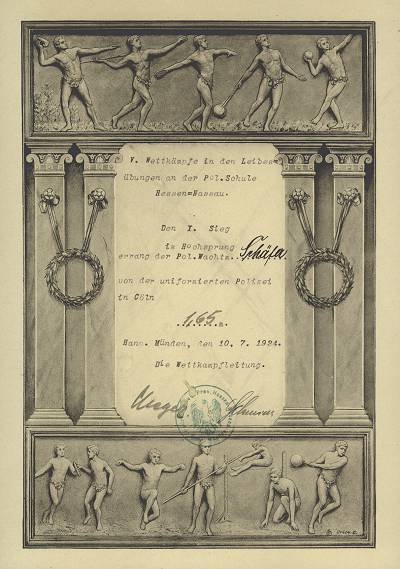 V. Wettkämpfe in den Leibes=
übungen an der Pol.Schule
Hessen=Nassau.
Den I. Sieg
im Hochsprung
errang der Pol.Wachtm. Schäfer
von der uniformierten Polizei
in Cöln
1,65 m.
Hann. Münden, den 10. 7. 1924.
Die Wettkampfleitung.